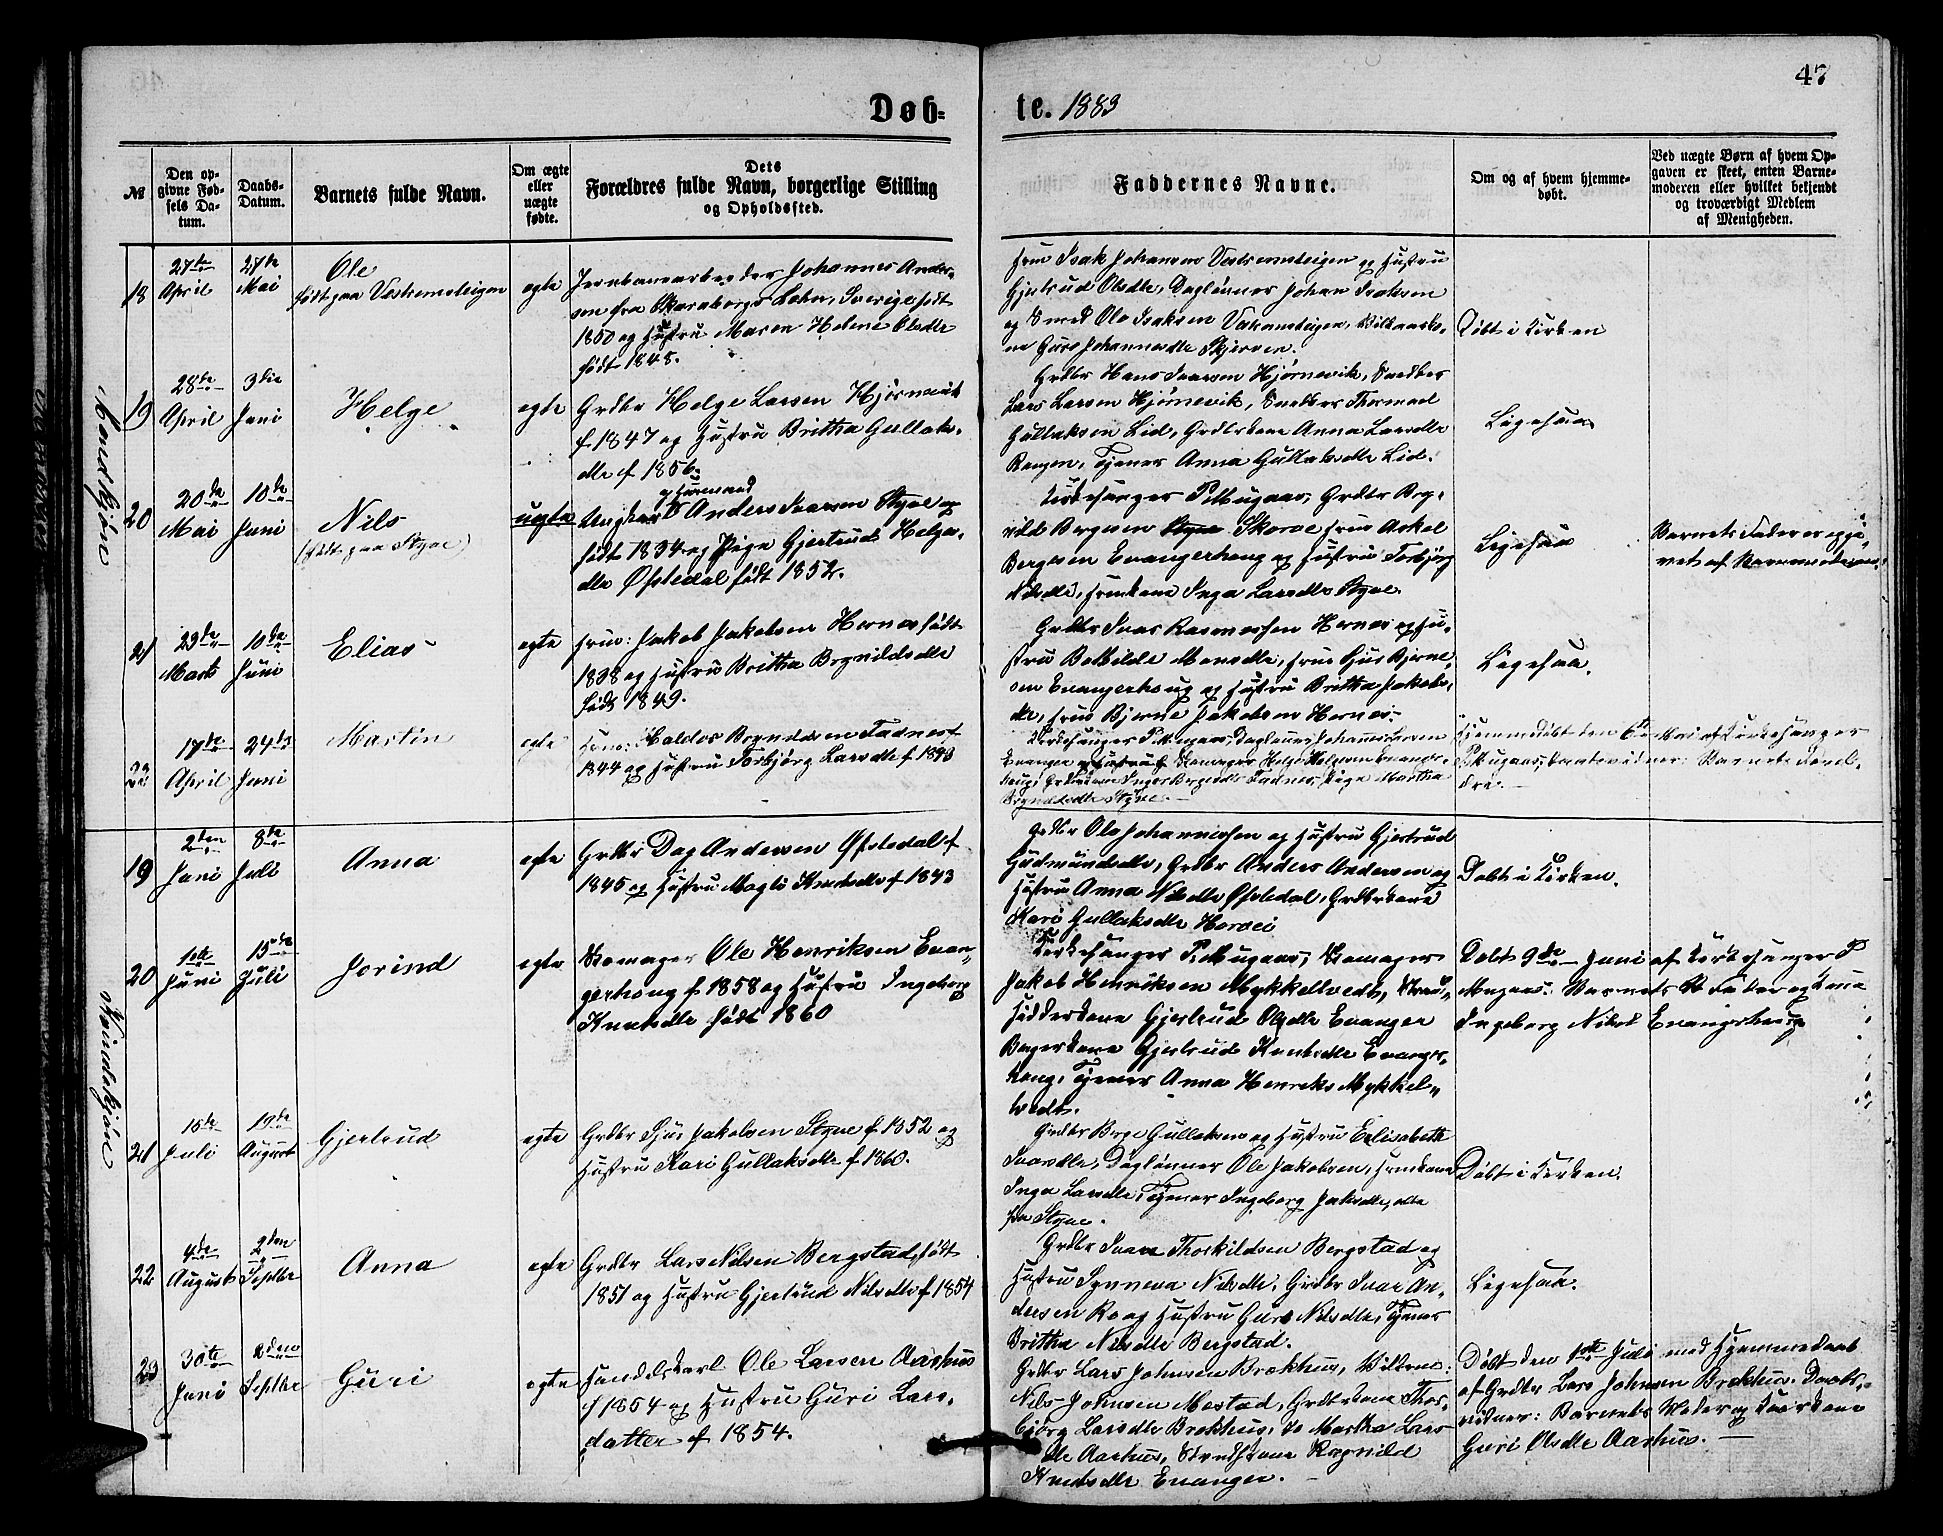 47
Døb-
te. 1883
№
Den op-
givne Fød-
sels Da-
tum.
Daabs-
Datum.
Barnets fulde Navn.
Om ægte
eller
uægte
fødte.
Dets
Forældres fulde Navn, borgerlige Stilling
og Opholdssted.
Faddernes Navne.
Om og af hvem hjemme-
døbt.
Ved uægte Børn af hvem Op-
gaven er skeet, enten Barne-
moderen eller hvilket bekjendt
og troværdigt Medlem
af Menigheden.
Mandskjøn
18
27de
April
27de
Mai
Ole
født paa
egte
Jernbanearbeider Johannes Anders-
son fra Skaraborgs Lehn, Sverige født
1850 og Hustru Maren Helene Olsdtr
født 1848.
Isak Johansen og Hustru
Gjertrud Olsdtr, Daglønner Johan Isaksen
og Smed Ole Isaksen
Guro Johannesdtr
Døbt i Kirken
19
28de
April
3die
Juni
Helge
egte
Grdbr Helge Larsen Hjørnevik
f 1847 og Hustru Britha Gullaks-
dtr f 1856.
Grdbr Hans Ivarsen Hjørnevik,
Lars Larsen Hjørnevik,
Gullaksen Lid, Grdbrkone Anna Larsdtr
Tjener Anna Gullaksdtr Lid.
Ligesaa
20
20de
Mai
10de
Juni
Nils
(født paa Styve)
uegte
Ungkarl og Huusmand Anders Ivarsen Styve og
født 1834 og Pige Gjertrud Helge-
dtr Øfstedal født 1852.
Kirkesanger P. Mugaas, Grdbr Bry-
nild Bergesen Skorve Askel
Bergesen Evangerhoug og Hustru Torbjørg
Inga Larsdtr Styve.
Ligesaa
Barnets Fader opgi-
vet af Barnemoderen
21
23de
Marts
10de
Juni
Elias
egte
Jakob Jakobsen Hernes født
1838 og Hustru Britha Brynildsdtr
født 1849.
Grdbr Ivar Rasmussen Hernes og Hu-
stru Bothilde Monsdtr, Sjur Bjerne-
sen Evangerhoug og Hustru Britha Jakobs-
dtr, Bjerne Jakobsen Hernes.
Ligesaa.
22
17de
April
24de
Juni
Martin
egte
Haldor Brynildsen Fadnes f
1844 og Hustru Torbjørg Larsdtr f 1843
Kirkesanger P. Mugaas, Daglønner
Evanger Helge Helgesen Evanger-
houg, Fadnes, Pige Martha
Brynildsdtr Styve.
Hjemmedøbt den Mai af Kirkesanger
P. Mugaas; Daabsvidner: Barnets Foræl-
dre.
Kvindekjøn
19
2den
Juni
8de
Juli
Anna
egte
Grdbr Dag Andersen Øfstedal f
1845 og Hustru Magli Knutsdtr f 1843
Grdbr Ole Johannessen og Hustru Gjertrud
Gudmundsdtr, Grdbr Anders Andersen og
Hustru Anna Nilsdtr Øfstedal, Grdbrkone
Kari Gullaksdtr Horvei
Døbt i Kirken.
20
1ste
Juni
15de
Juli
Jorind
egte
Skomager Ole Henriksen Evan-
gerhoug f 1858 og Hustru Ingeborg
Knutsdtr født 1860
Kirkesanger P. Mugaas, Skomager
Jakob Henriksen Mykkeltvedt,
Gjertrud Olsdtr Evanger
Bagerkone Gjertrud Knutsdtr Evanger-
houg, Tjener Anna Henriks Mykkel-
tvedt.
Døbt 9de Juni af Kirkesanger P
Mugaas: Barnets Fader og Kone
Ingeborg Nilsd Evangerhoug
21
15de
Juli
19de
August
Gjertrud
egte
Grdbr Sjur Jakobsen Styve f 1852 og
Hustru Kari Gullaksdtr f 1860.
Grdbr Berge Gullaksen og Hustru Elisabeth
Ivarsdtr, Daglønner Ole Jakobsen,
Inga Larsdtr, Tjener Ingeborg alle
fra Styve.
Døbt i Kirken.
22
4de
August
2den
Septbr
Anna
egte
Grdbr Lars Nilsen Bergstad, født
1851 og Hustru Gjertrud Nilsdtr f 1854
Grdbr Ivar Thorkildsen Bergstad og
Hustru Synneva Nilsdtr, Grdbr Ivar An-
dersen Ro og Hustru Guro Nilsdtr, Tjener
Britha Nilsdtr Bergstad.
Ligesaa.
23
30te
Juni
2den
Septbr
Guri
egte
Handelskarl Ole Larsen Aarhus
f 1854 og Hustru Guri Lars-
datter f 1854.
Grdbr Lars Johnsen Brækhus,
Nils Johnsen Mestad, Grdbrkone Thor-
bjørg Larsdtr Brækhus, do Martha Lars-
dtr Aarhus, Ragnild
Knutsdtr Evanger.
Døbt den 1ste Juli med Hjemmedaab
af Grdbr Lars Johnsen Brækhus. Daabs-
vidner: Barnets Moder og
Guri Olsdtr Aarhus.